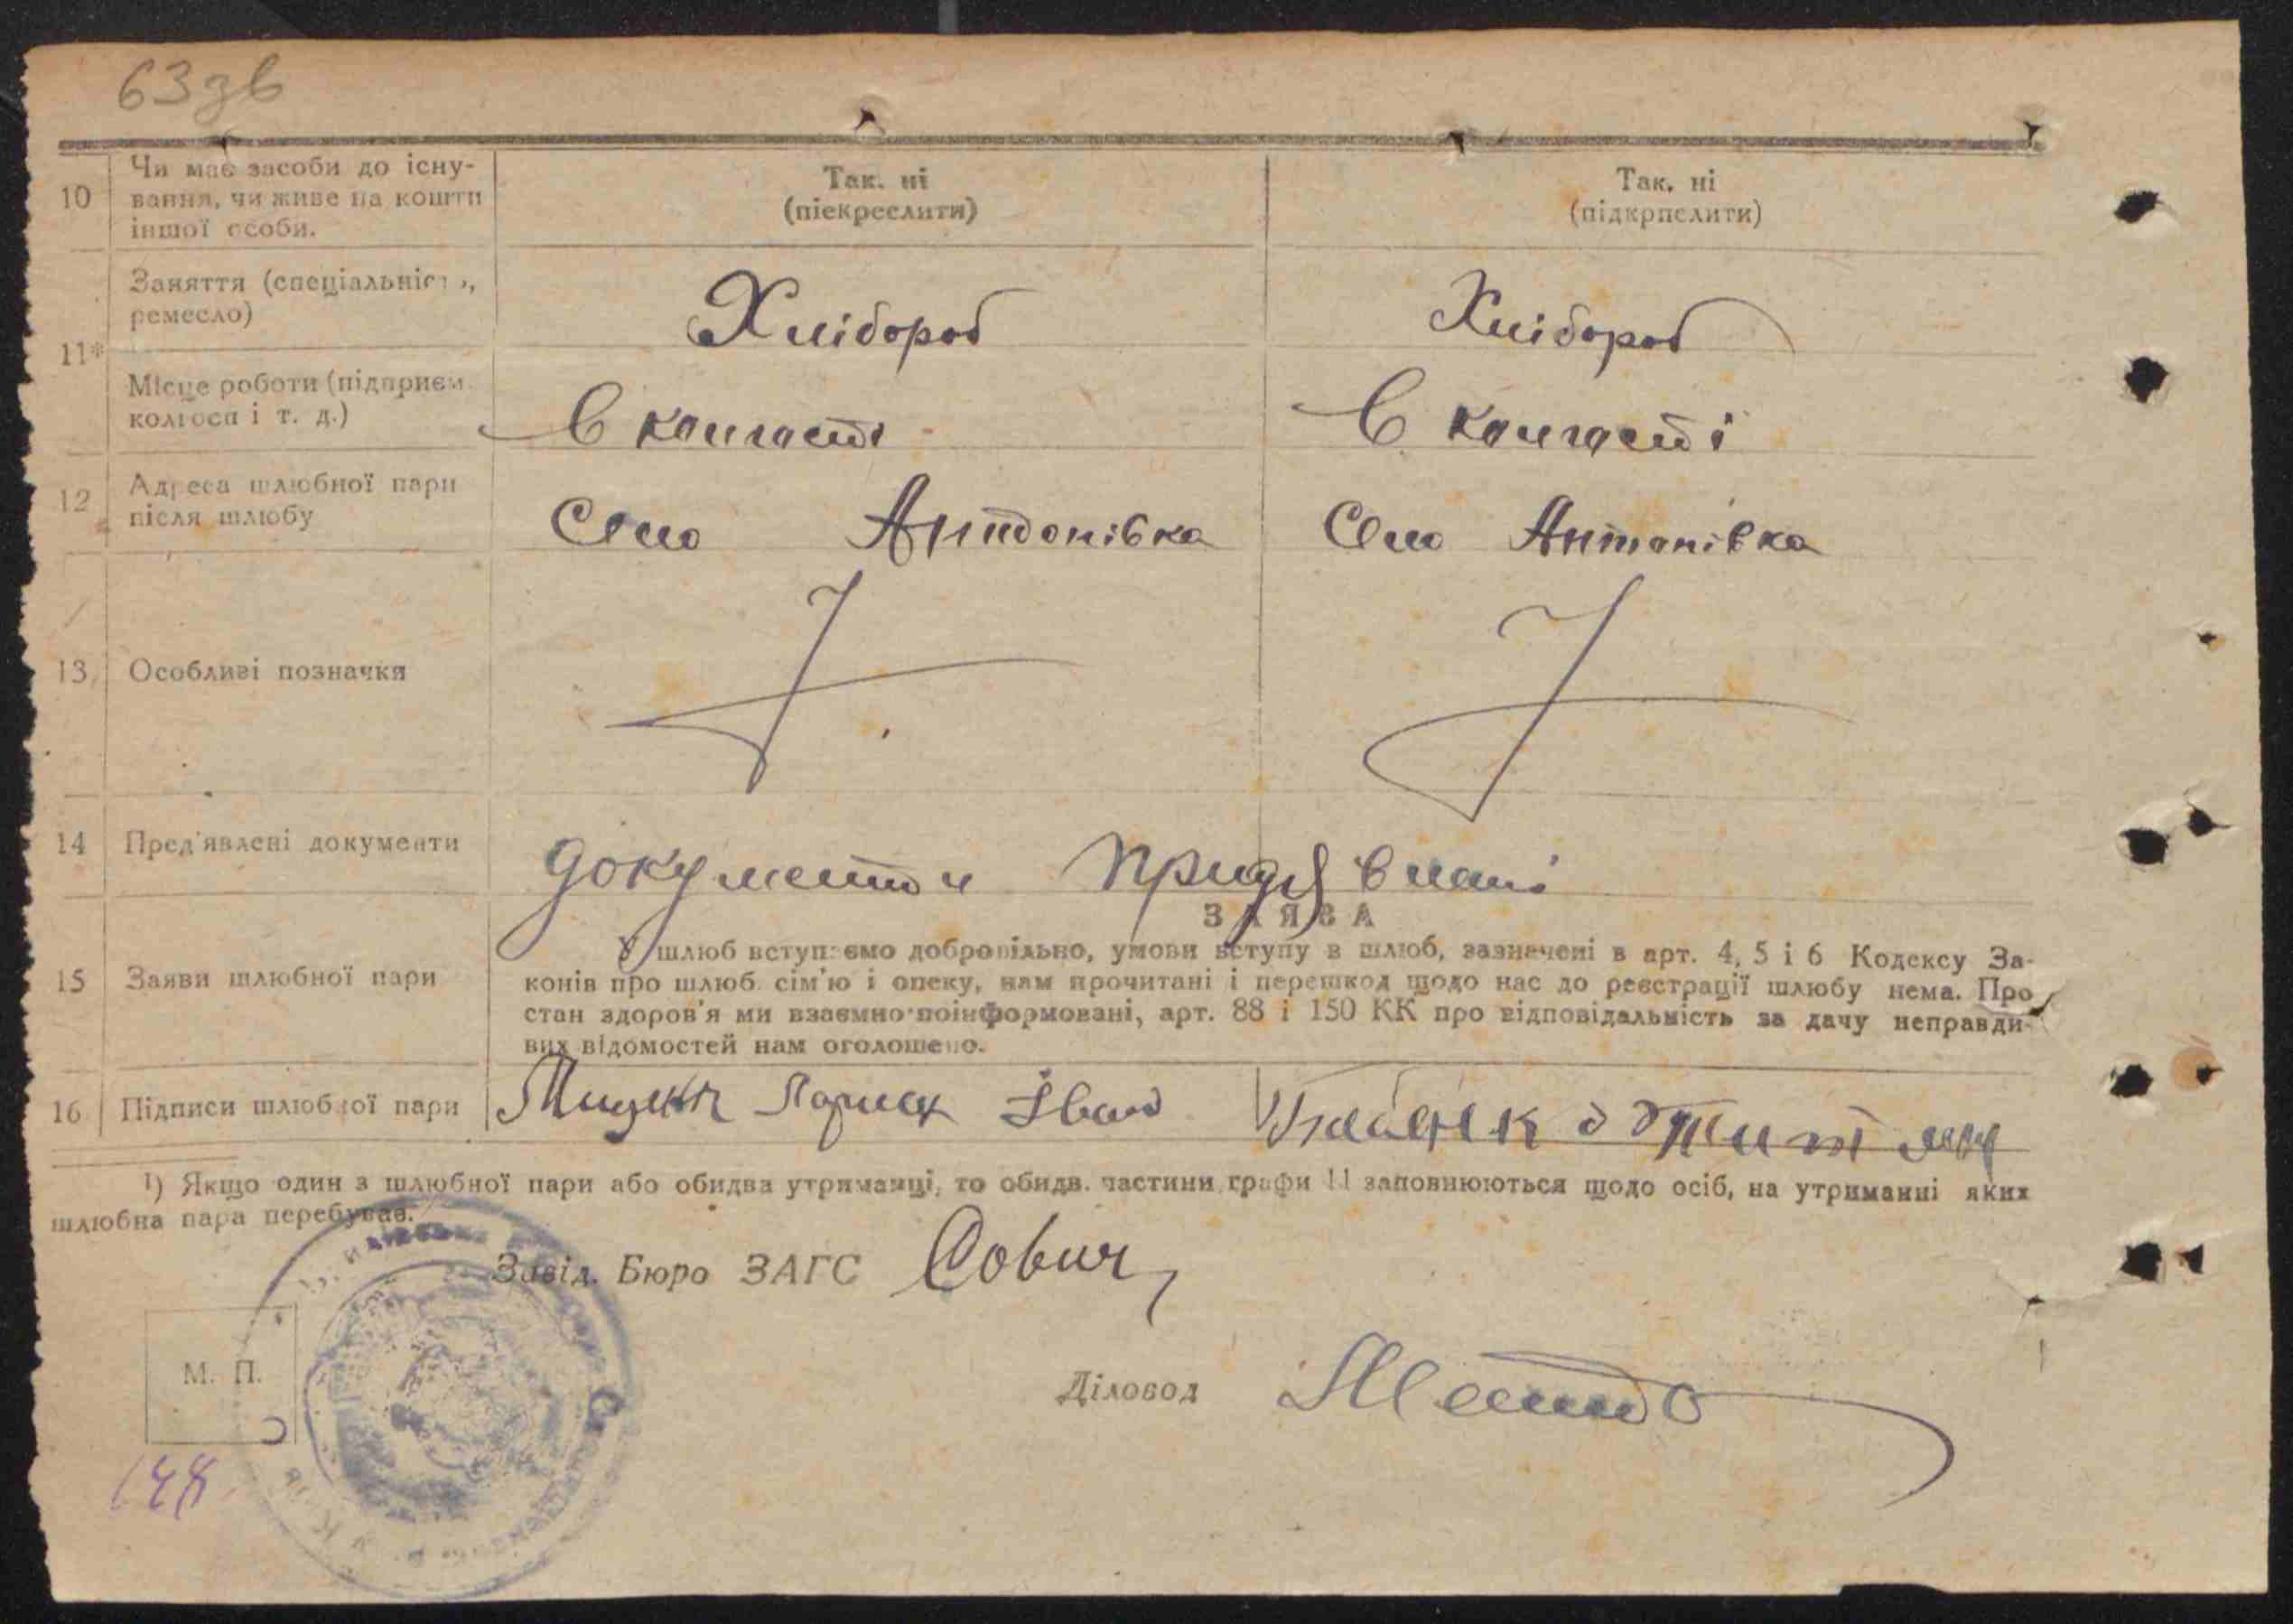 63зв
10 Чи має засоби до існу-
вання, чи живе на кошти
іншої особи.
Так. ні
(піекреслити)
Так, ні
(підкрпслити)
11* Заняття (спеціальність,
ремесло)
Хлібороб
Хлібороб
Місце роботи (підприєм.
колгосп і т. д.)
В колгості
В колгості
12 Адреса шлюбної пари
після шлюбу
Село Антонівка
Село Антонівка
13 Особливі позначки
14 Пред'явлені документи
Документи придявлані
ЗАЯВА
15 Заяви шлюбної пари
У шлюб вступаємо добровільно, умови вступу в шлюб, зазначені в арт. 4, 5 і 6 Кодексу За-
конів про шлюб. сім'ю і опеку, нам прочитані і перешкод щодо нас до реєстрації шлюбу нема. Про
стан здоров'я ми взаємно поінформовані, арт. 88 і 150 КК про відповідальність за дачу неправди-
вих відомостей нам оголошено.
16 Підписи шлюбної пари
Іван
¹) Якщо один з шлюбної пари або обидва утриманці, то обидв. частини графи 11 заповнюються щодо осіб, на утриманні яких
шлюбна пара перебуває.
Завід. Бюро ЗАГС Сович
М. П.
Діловод
148